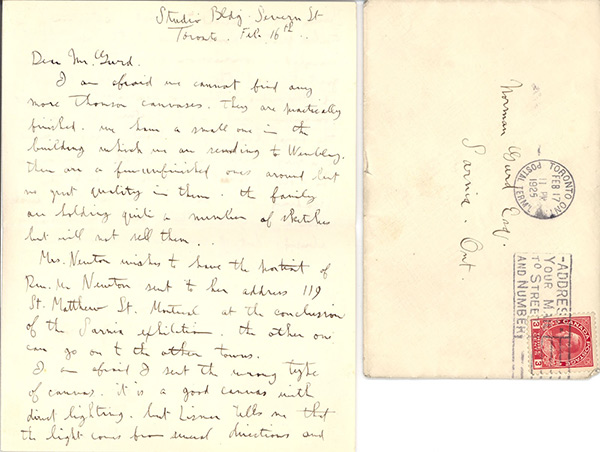 Studio Bldg. Severn St
Toronto. Feb. 16th.
Dear Mr. Gurd.
I am afraid we cannot find any
more Thomson canvases. They are practically
finished. we have a small one in the
building which we are sending to Wembley.
there are a few unfinished ones around but
no great quality in them. the family
are holding quite a number of sketches
but will not sell them..
Mrs. Newton wishes to have the portrait of
Rev. Mr Newton sent to her address 119
St. Matthew St. Montreal at the conclusion
of the Sarnia exhibition. the other one
can go on to the other towns.
I am afraid I sent the wrong type
of canvas. it is a good canvas with
direct lighting. but Lismer tells me that
the light comes from several directions and
Norman Gurd Esq.
Sarnia. Ont
TORONTO ONT
FEB 17
11 PM
1925
POSTAL TERM'L
-ADDRESS
YOUR MAIL
TO STREET
AND NUMBER
3 3